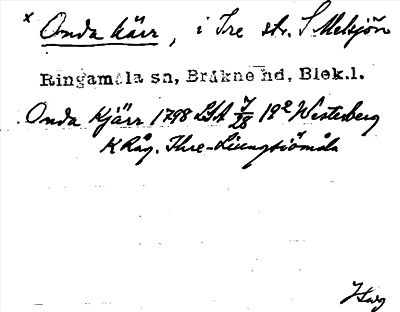 x Onda kärr, i Ire str. S Melsjön
Ringamåla sn, Bräkne hd, Blek.l.
Onda Kjärr 1798 LSA 7/28 19² Westerberg
K Råg. Ihre-Ljungsjömåla